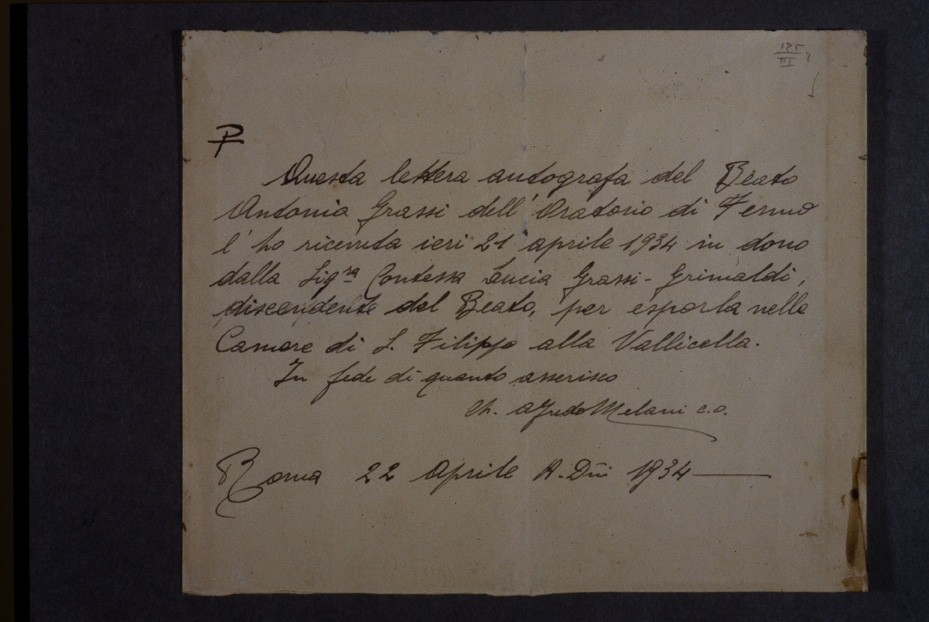 175
III
P
Questa lettera autografa del Beato
Antonio Grassi dell' Oratorio di Fermo
l' ho ricevuta ieri 21 aprile 1934 in dono
dalla Sigra Contessa Lucia Grassi-Grimaldi,
discendente del Beato, per esporla nelle
Camere di S. Filippo alla Vallicella.
In fede di quanto asserisco
Alfredo Melani c.o.
Roma 22 Aprile A. Dni 1934